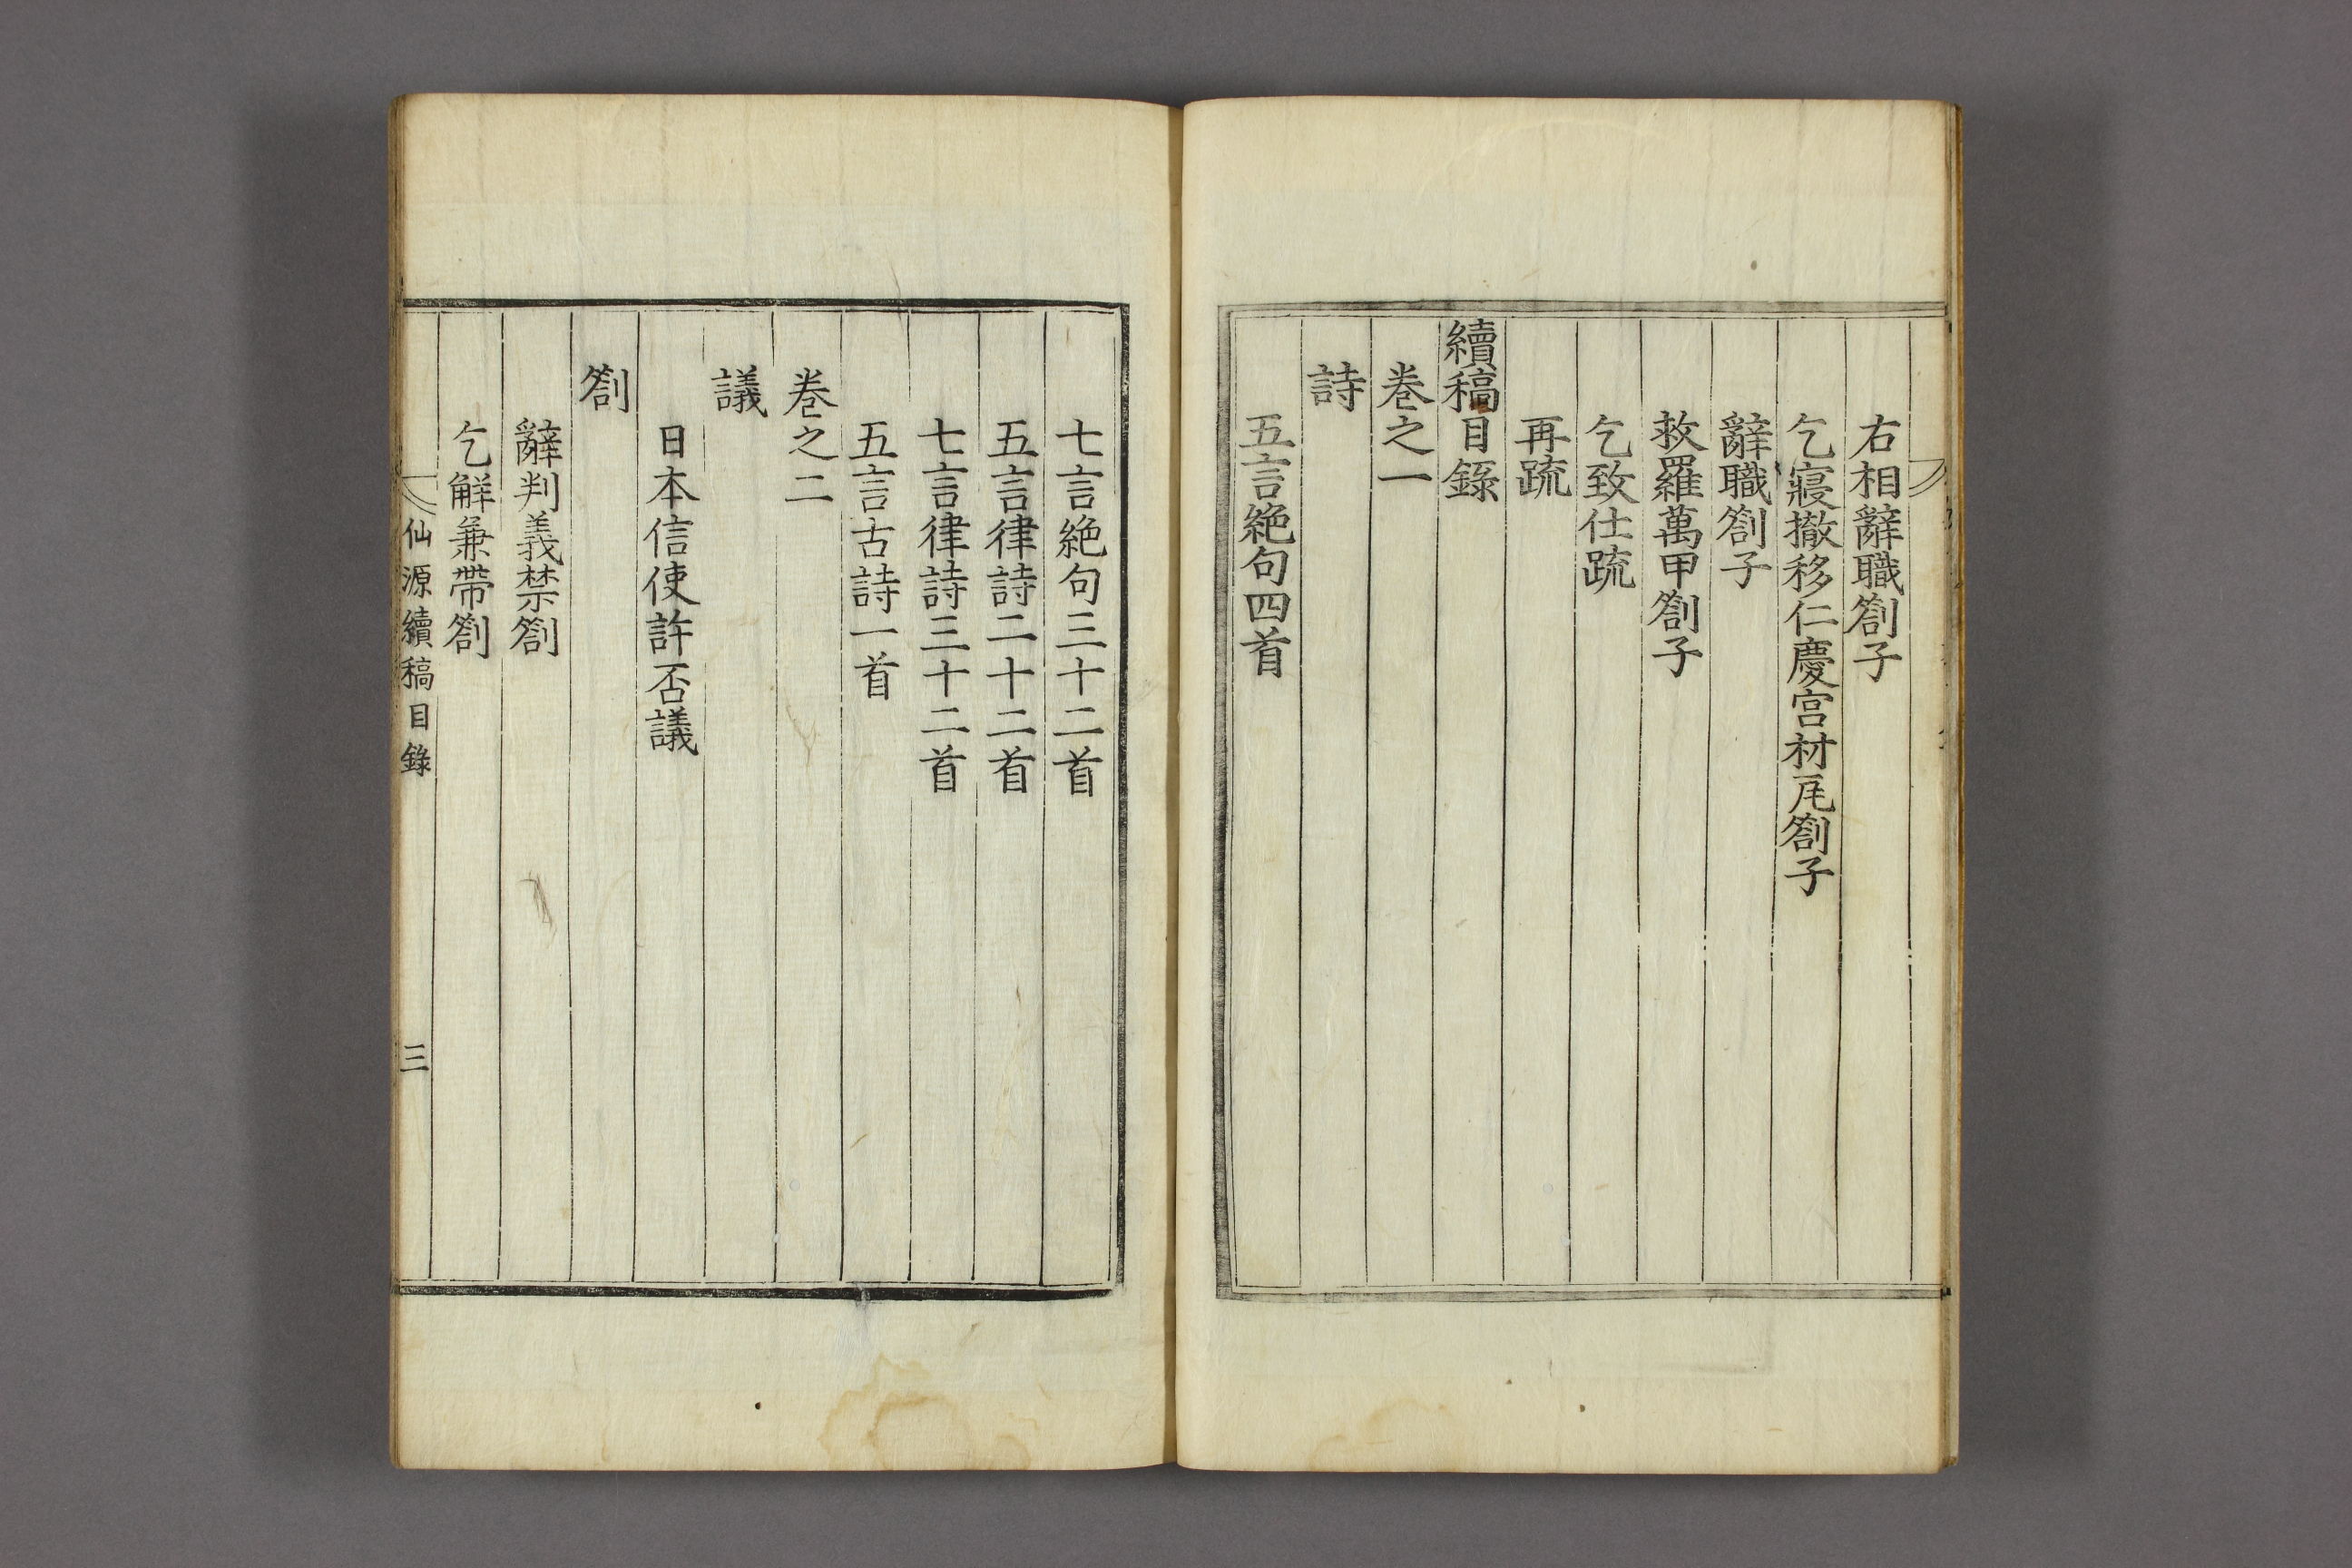 右相辭職劄子
乞寢撤移仁慶宮材瓦劄子
辭職劄子
救羅萬甲劄子
乞致仕䟽
再䟽
續稿目錄
卷之一
詩
五言絶句四首
七言絶句三十二首
五言律詩二十二首
七言律詩三十二首
五言古詩一首
卷之二
議
日本信使許否議
劄
辭判義禁劄
乞解兼帶劄
仙源續稿目錄 三